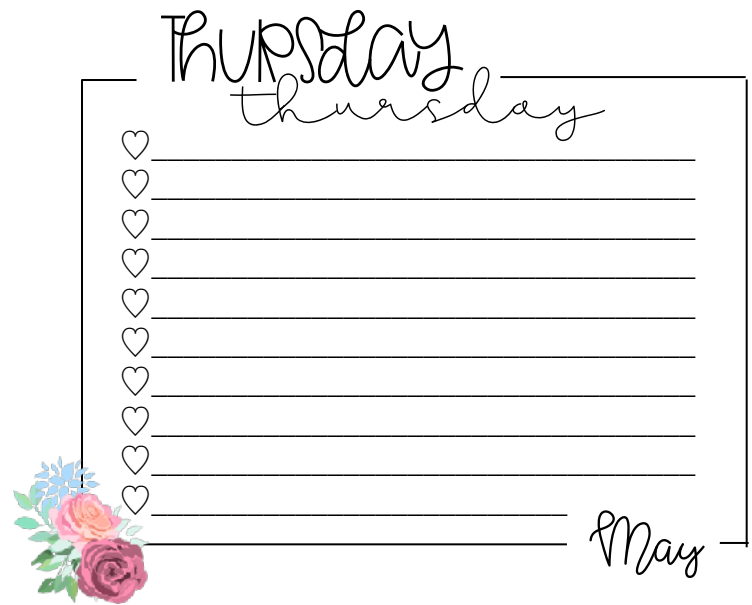 Thursday
thursday
May